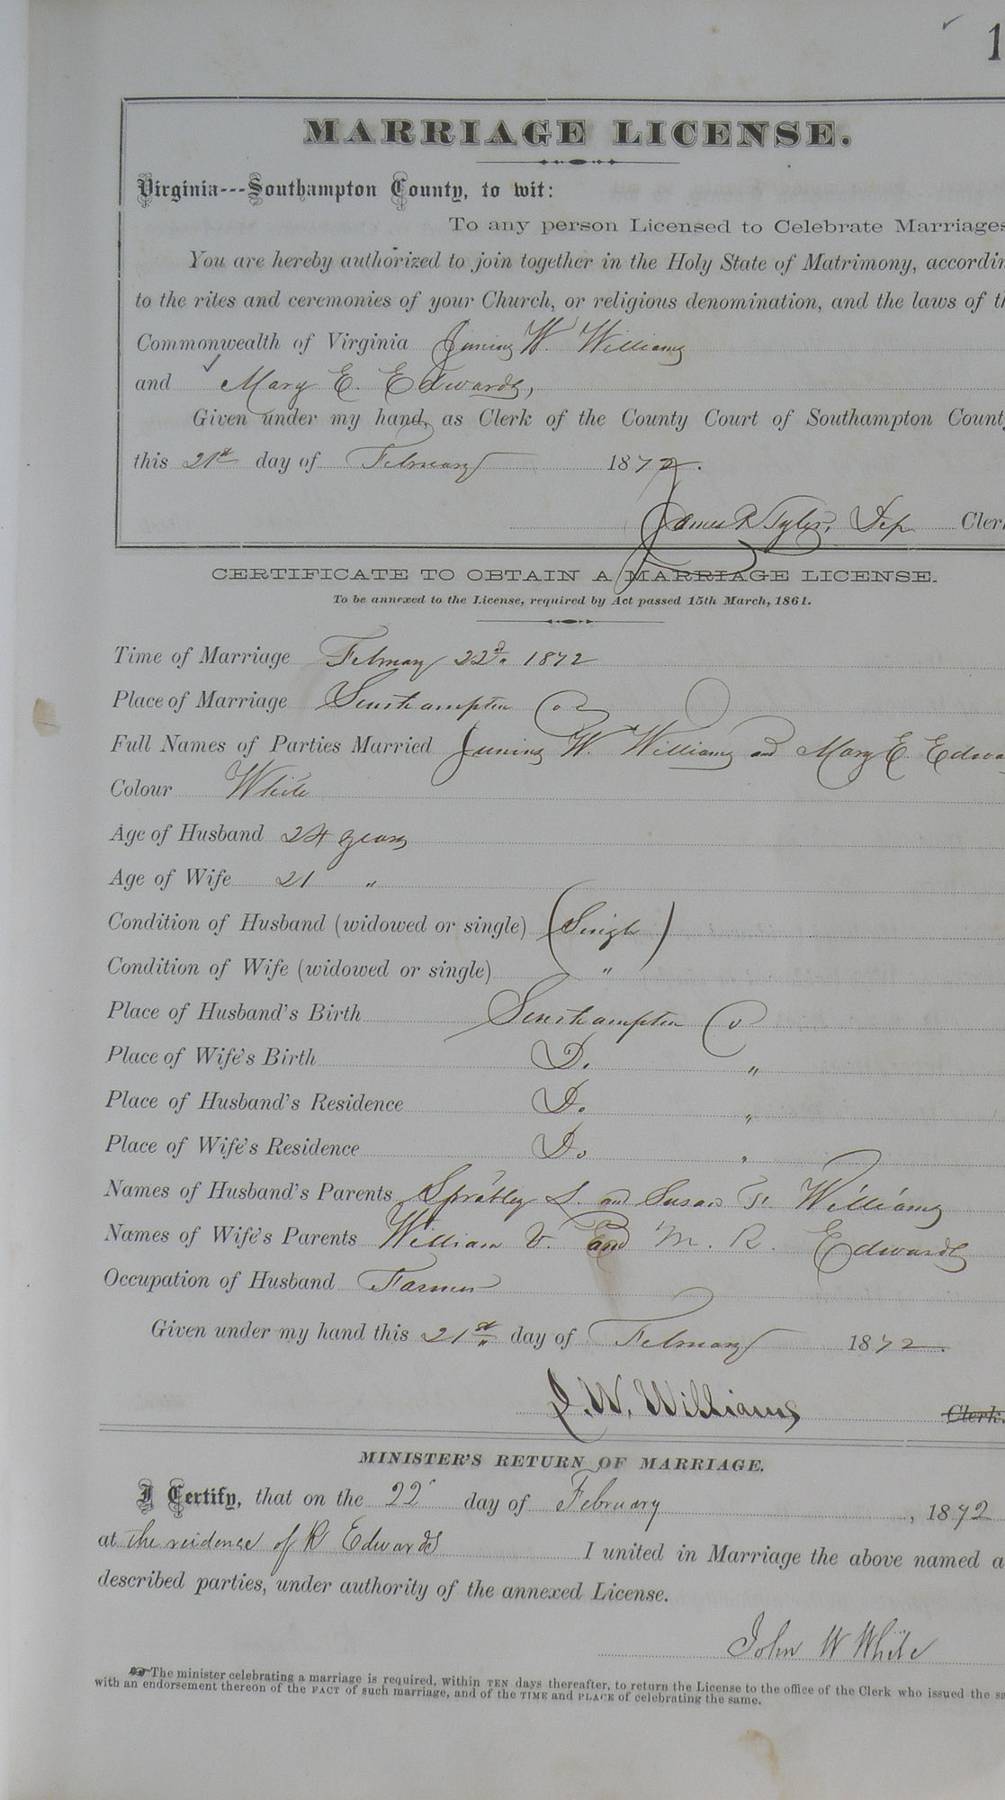 1
MARRIAGE LICENSE.
Virginia---Southampton County, to wit:
To any person Licensed to Celebrate Marriages
You are hereby authorized to join together in the Holy State of Matrimony, accordin
to the rites and ceremonies of your Church, or religious denomination, and the laws of th
Commonwealth of Virginia Junius W. Williams
and Mary E. Edwards,
Given under my hand, as Clerk of the County Court of Southampton County
this 21st day of February 1872.
James R Tyler, Dep Cler
CERTIFICATE TO OBTAIN A MARRIAGE LICENSE.
To be annexed to the License, required by Act passed 15th March, 1861.
Time of Marriage February 22d. 1872
Place of Marriage Southampton Co
Full Names of Parties Married Junius W. Williams and Mary E. Edwa
Colour White
Age of Husband 24 years
Age of Wife 21 "
Condition of Husband (widowed or single) (Single)
Condition of Wife (widowed or single) "
Place of Husband's Birth Southampton Co
Place of Wife's Birth Do. "
Place of Husband's Residence Do. "
Place of Wife's Residence Do "
Names of Husband's Parents Spratley S. and Susan T. Williams
Names of Wife's Parents William V. and M. R. Edwards
Occupation of Husband Farmer
Given under my hand this 21st day of February 1872.
J. W. Williams Clerk.
MINISTER'S RETURN OF MARRIAGE.
I Certify, that on the 22 day of February, 1872
at the residence of R Edwards I united in Marriage the above named a
described parties, under authority of the annexed License.
John W White
The minister celebrating a marriage is required, within TEN days thereafter, to return the License to the office of the Clerk who issued the sa
with an endorsement thereon of the FACT of such marriage, and of the TIME and PLACE of celebrating the same.